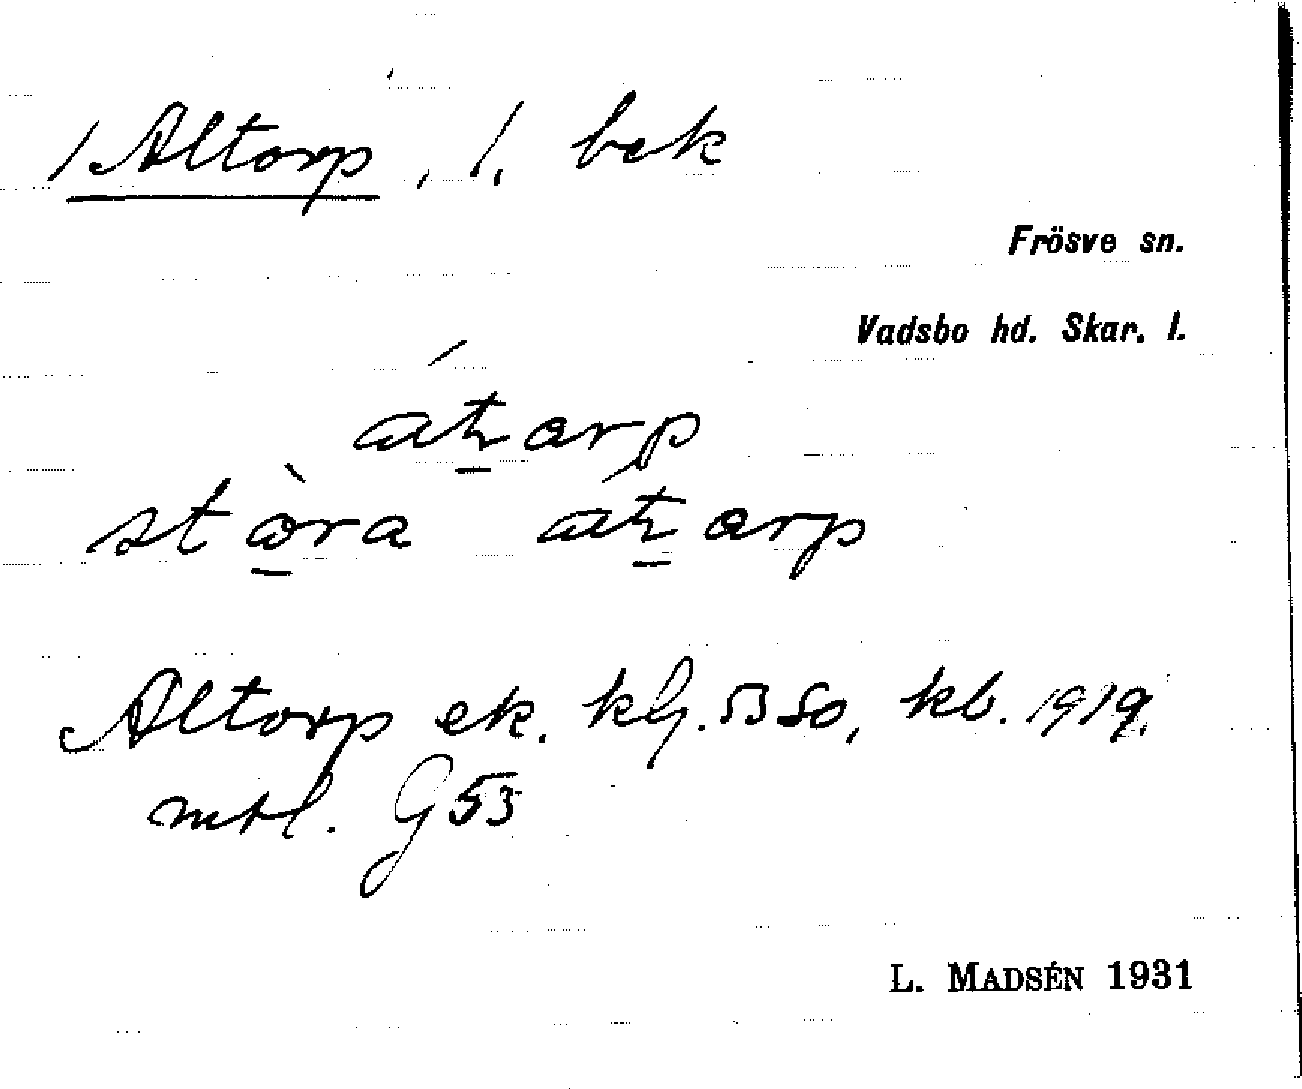 / Altorp, /, bek
Frösve sn.
Vadsbo hd. Skar. l.
átarp
stòra átarp
Altorp ek. 5350, kb. 1919.
mtl. G 53
L. MADSÉN 1931